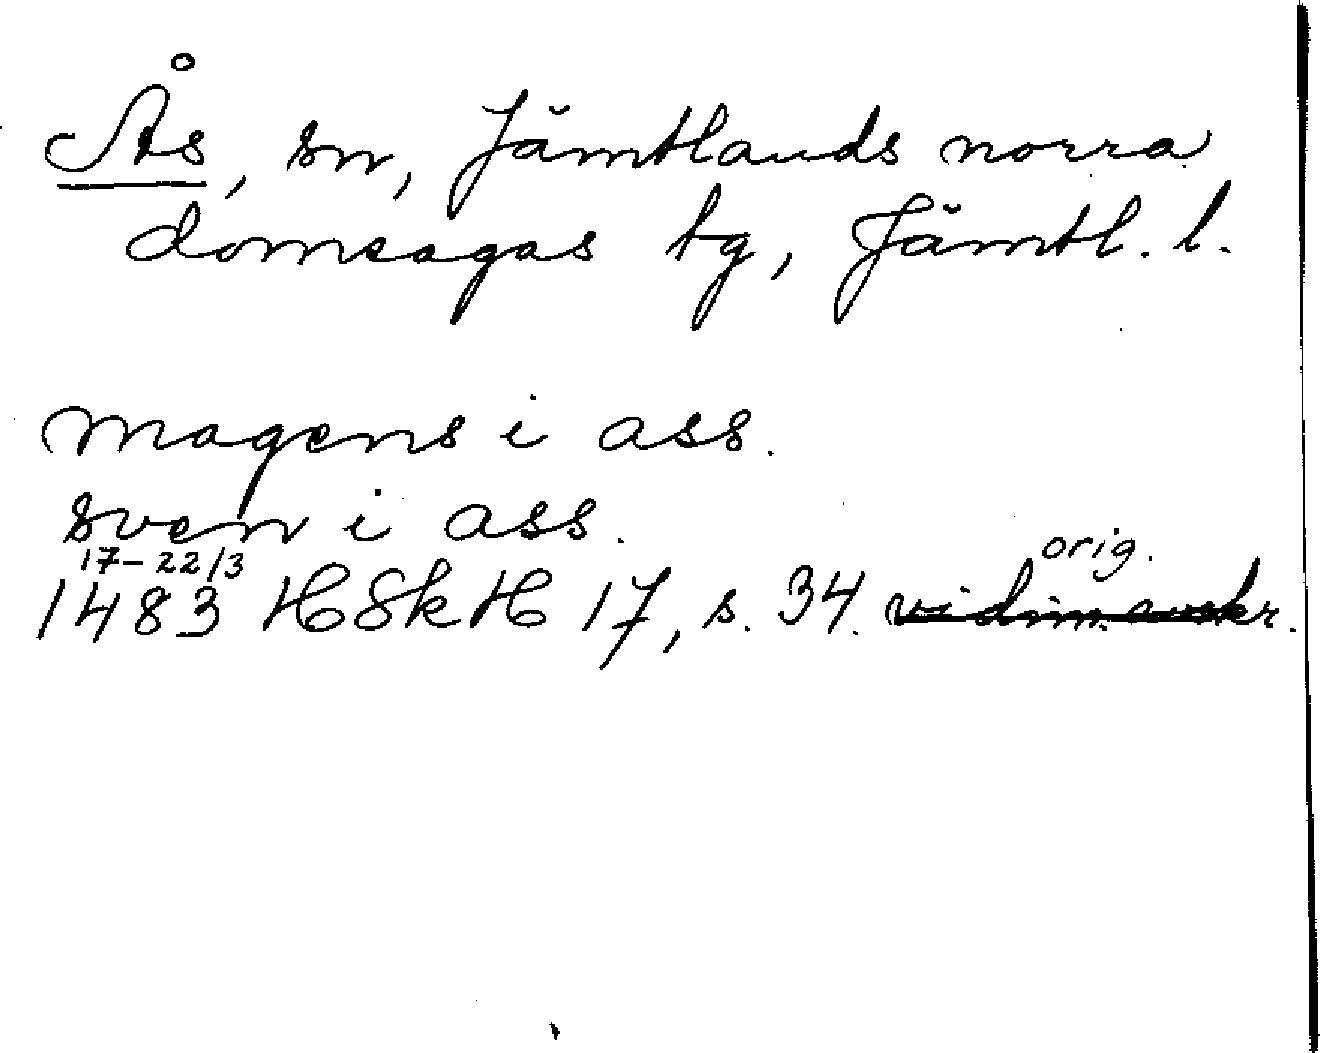 Ås, sn, Jämtlands norra
domsagas tg, Jämtl. l.
magens i ass.
sven i ass.
17-22/3 orig.
1483 HSkH 17, s. 34. vidim. avskr.